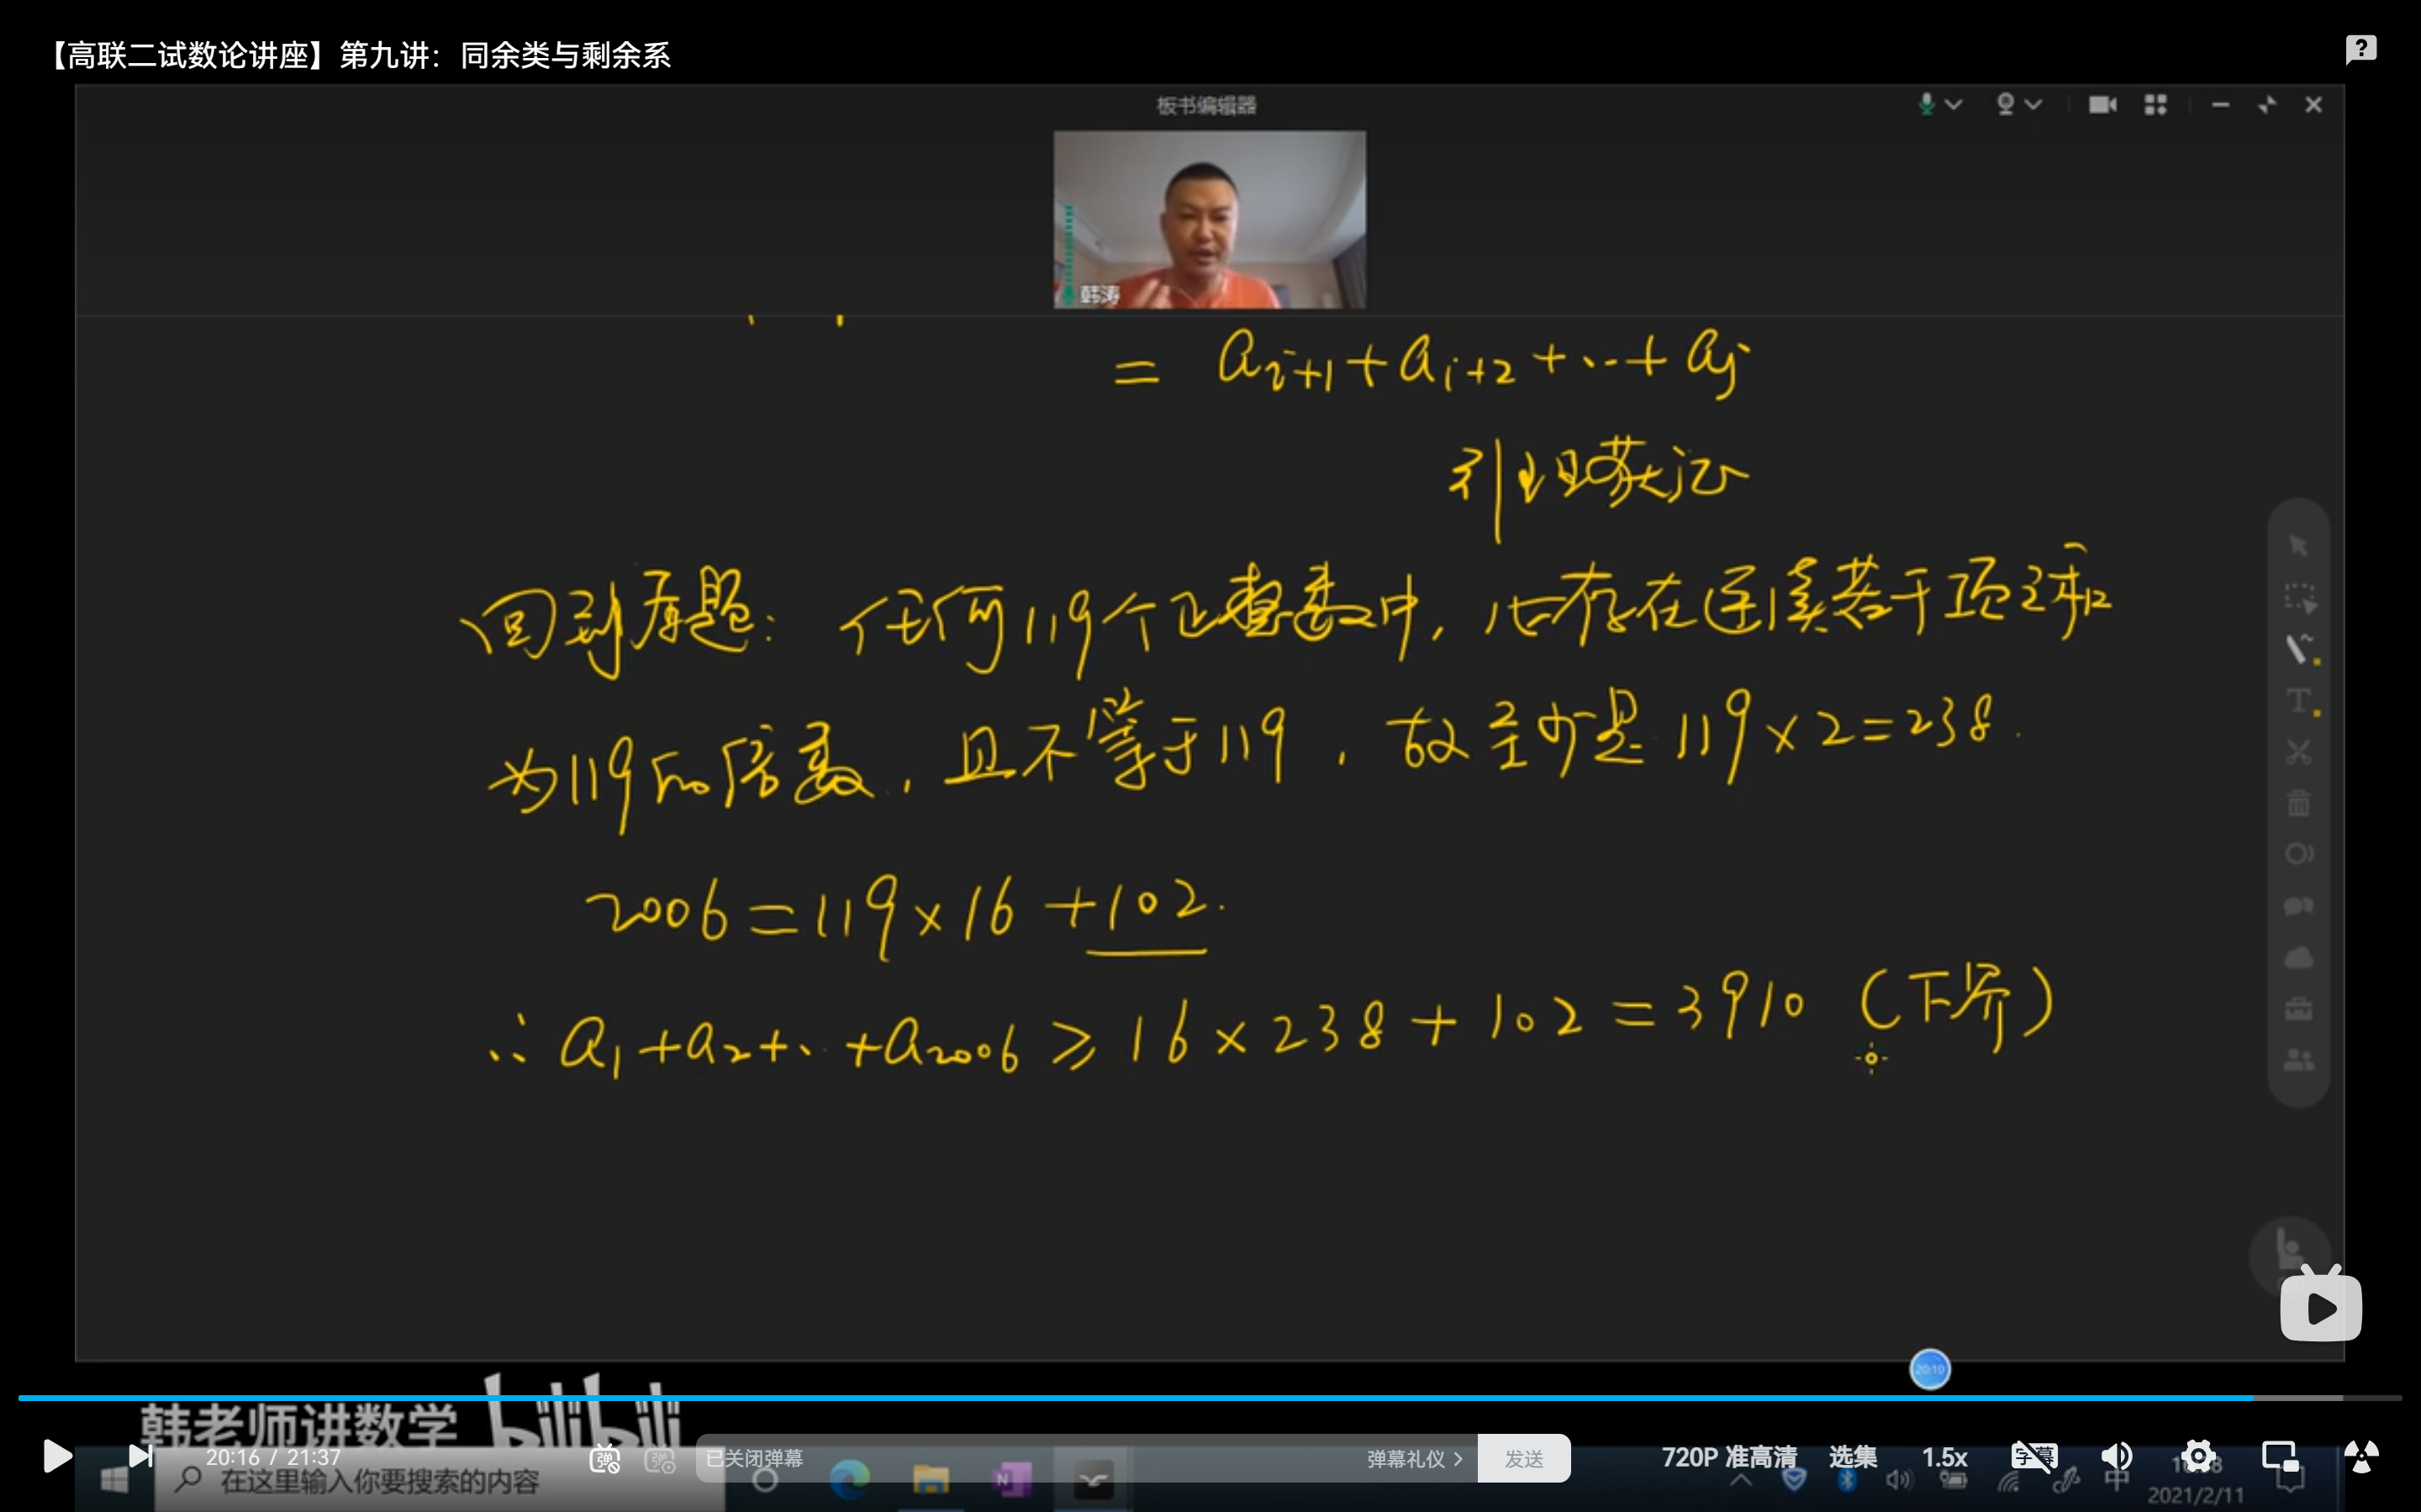 【高联二试数论讲座】第九讲：同余类与剩余系
板书编辑器
韩涛
= a_{i+1} + a_{i+2} + ... + a_j
引理获证
回到原题：任何119个正整数中，必存在连续若干项之和
为119的倍数，且不等于119，故至少是119×2=238.
2006=119×16+102.
∴ a₁+a₂+...+a₂₀₀₆ ≥ 16×238+102=3910 (下界)
20:10
韩老师讲数学 bilibili
20:16 / 21:37
弹
已关闭弹幕
弹幕礼仪 >
发送
720P 准高清
选集
1.5x
字幕
在这里输入你要搜索的内容
N
中
2021/2/11